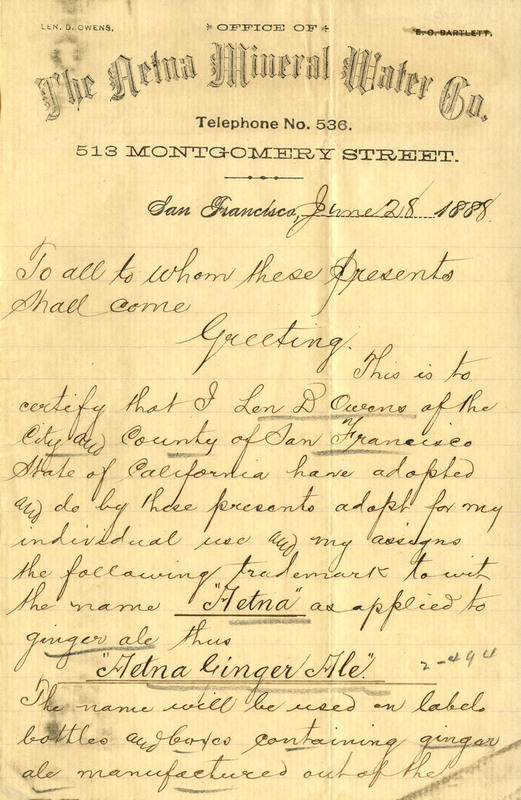 LEN. D. OWENS.
OFFICE OF
E. O. BARTLETT.
The Aetna Mineral Water Co.
Telephone No. 536.
513 MONTGOMERY STREET.
San Francisco, June 28 1888.
To all to whom these presents
shall come
Greeting.
This is to
certify that I Len D Owens of the
City and County of San Francisco
State of California have adopted
and do by these presents adopt for my
individual use and my assigns
the following trademark to wit
the name "Aetna" as applied to
ginger ale thus
"Aetna Ginger Ale".
2-494
The name will be used on labels
bottles and boxes containing ginger
ale manufactured out of the